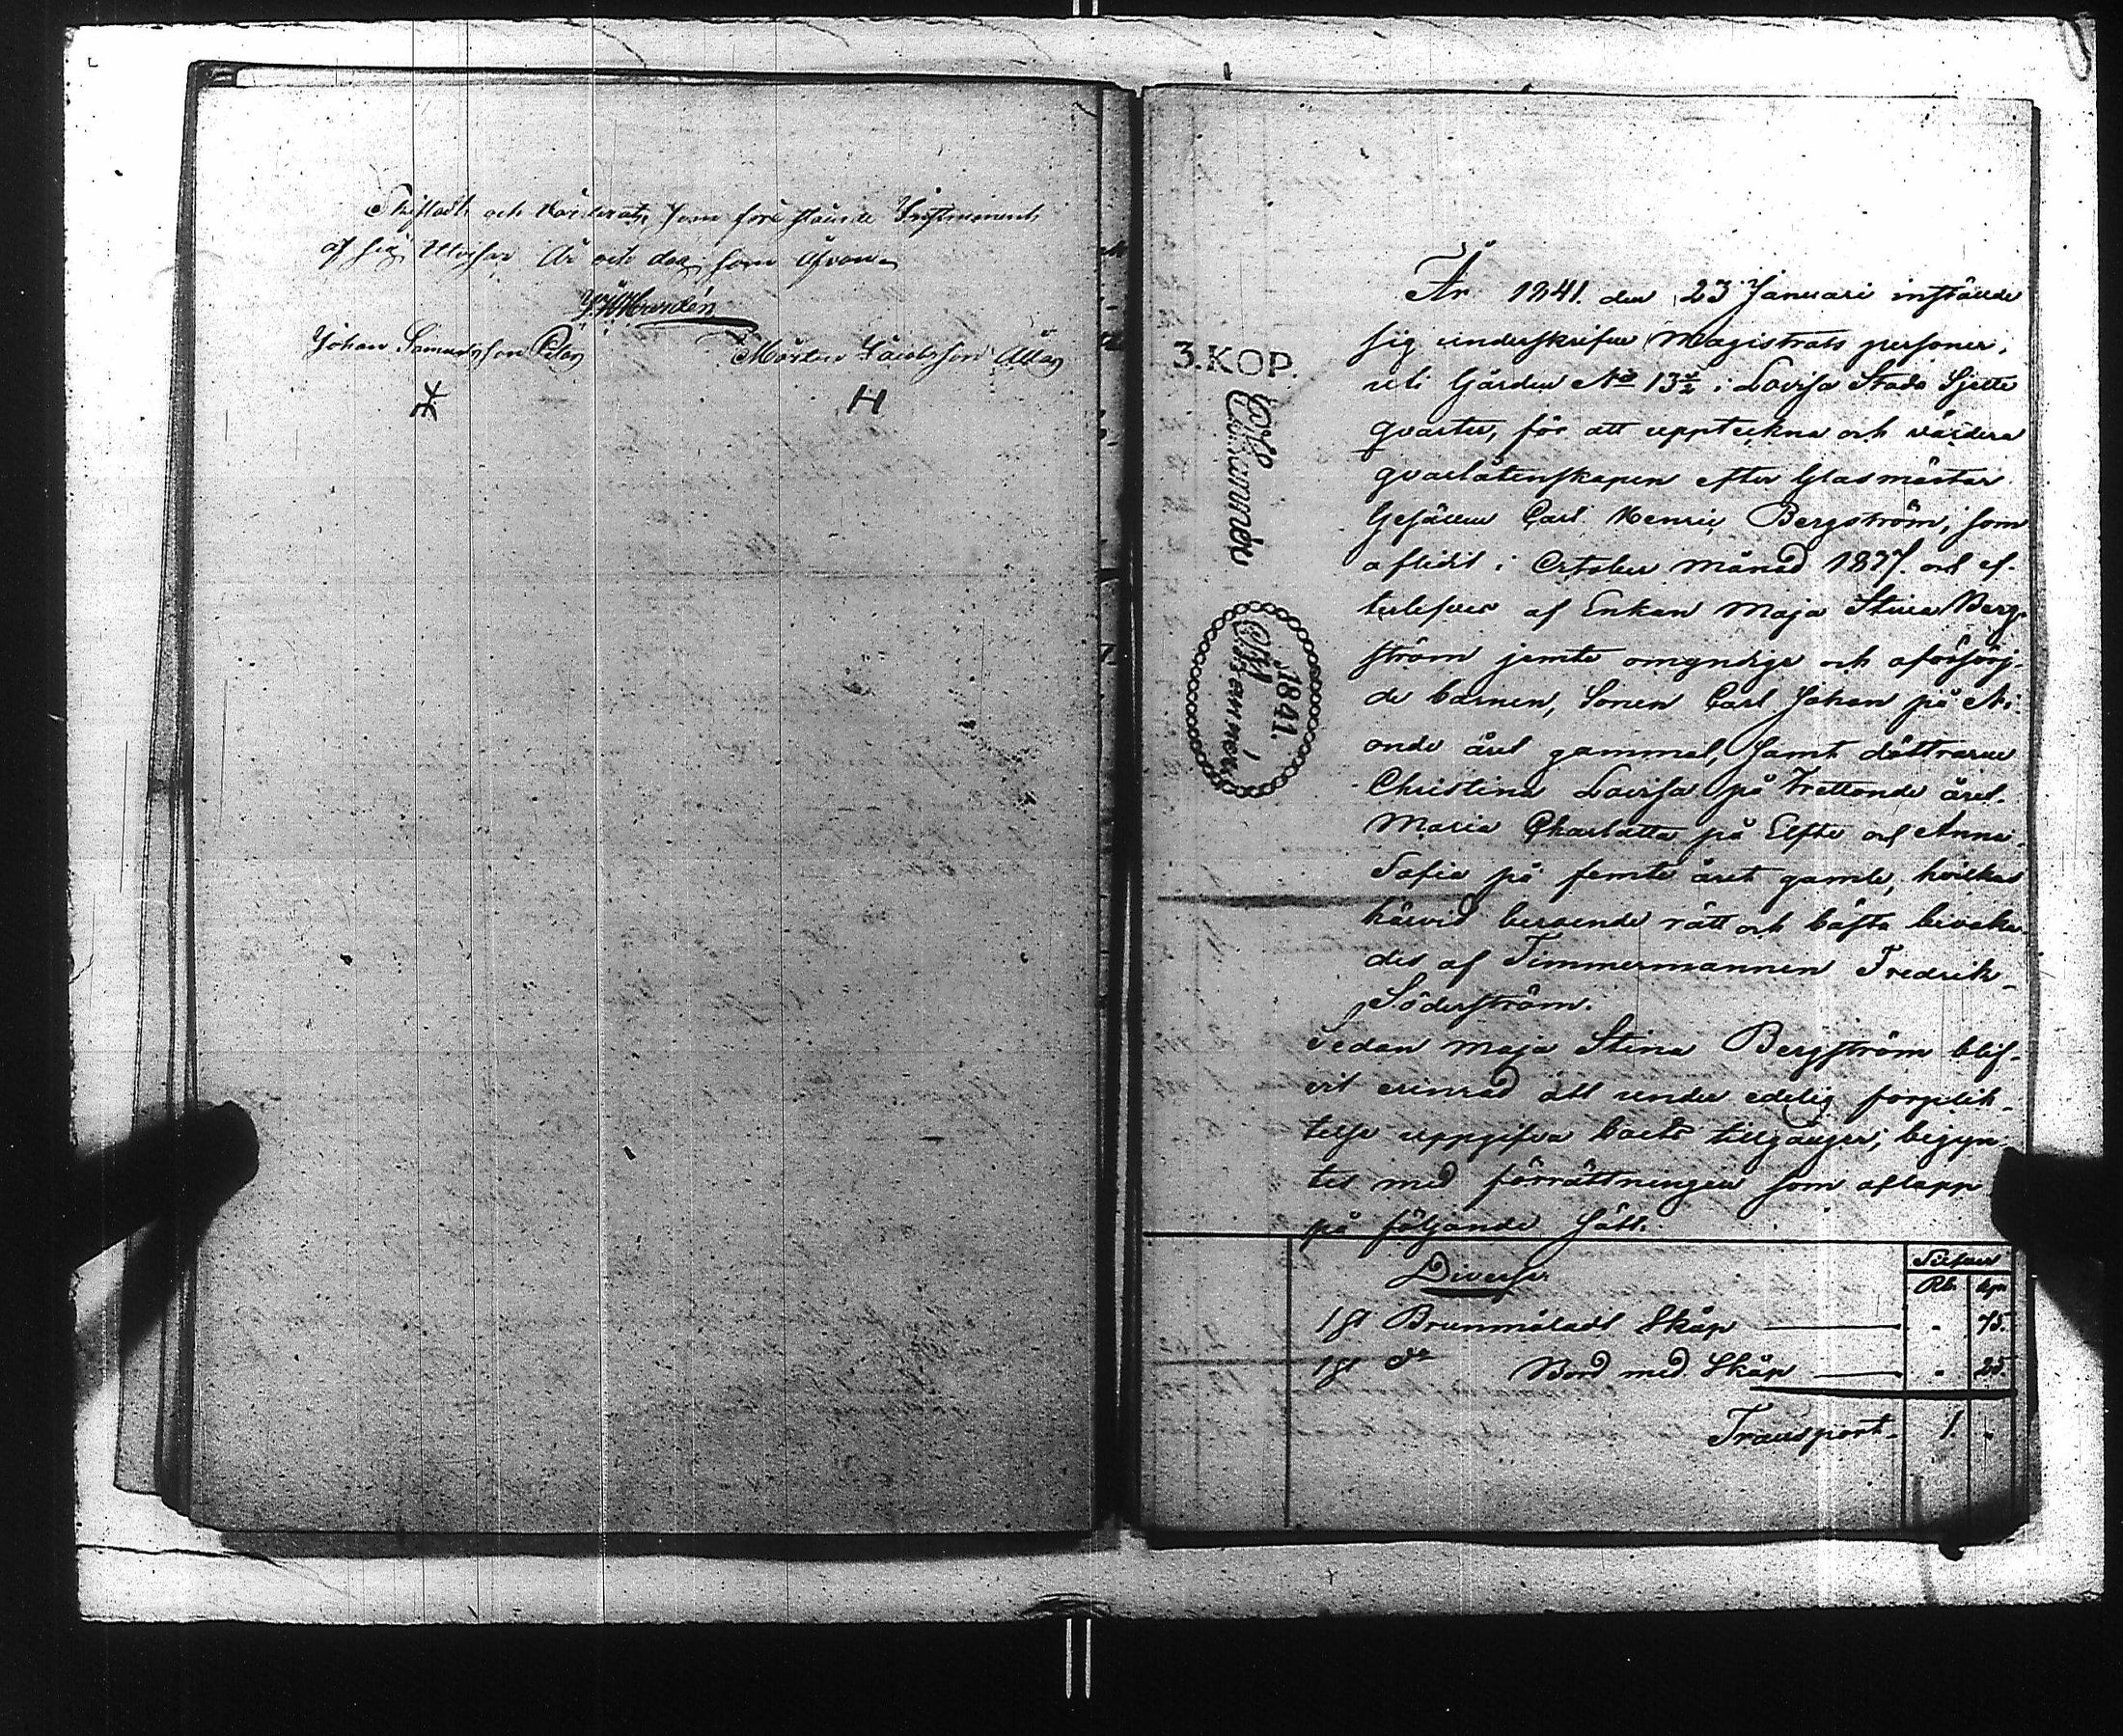 Skiftadt och Värderadt som före stående Instrument
af sig Utvisar År och dag som ofvan
Johan Samuelsson Mårten Jacobsson
H
3. KOP.
1841.
År 1841. den 23 Januari inställde
sig underskrifne Magistrats personer,
uti Gården No 13½ i Lovisa Stads Sjette
qvarter, för att uppteckna och värdera
qvarlåtenskapen efter Glasmästar
Gesällen Carl Henric Bergström, som
aflidit i October månad 1837. och ef-
terlefves af Enkan Maja Stina Berg-
ström jemte omyndige och oförsörj-
de barnen, Sonen Carl Johan på Ni-
onde året gammal, samt döttrarne
Christina Lovisa på Trettonde året.
Maria Charlotta på Elfte och Anna
Sofia på femte året gamle, hvilkas
härvid beroende rätt och bästa bevaka-
des af Timmermannen Fredrik
Söderström.
Sedan Maja Stina Bergström blif-
vit erinrad att under edelig förplik-
telse uppgifva boets tillgångar; begyn-
tes med förrättningen som aflopp
på följande sätt.
Diverse Silfver
Rb. kop.
1 st Brunmåladt Skåp - 75.
1 st do Bord med Skåp - 25.
Transport 1. -